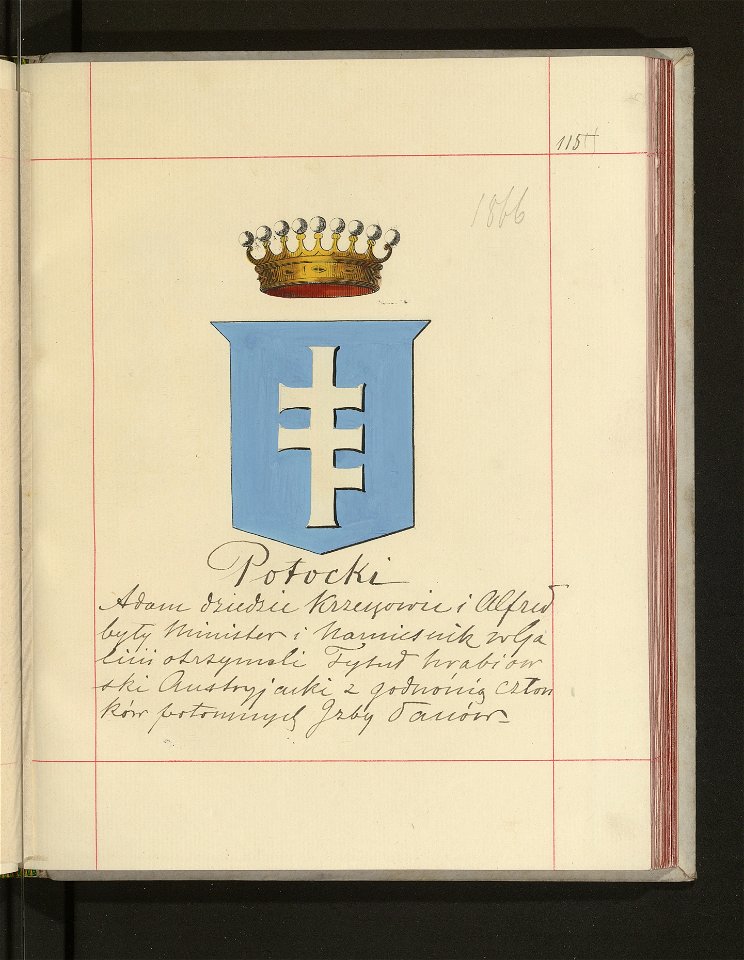 115
1866
Potocki
Adam dziedzic Krzeszowic i Alfred
były Minister i Namiestnik w Ga
licii otrzymali Tytuł hrabiow
ski Austryjacki z godnością człon
ków potomnych Izby Panów